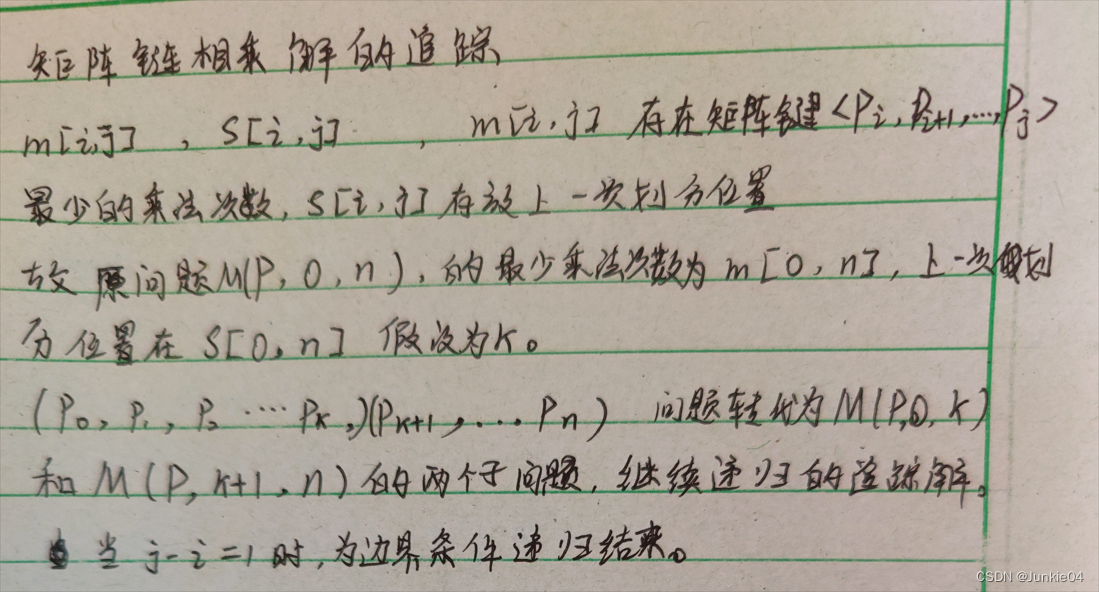 矩阵链相乘 解的追踪
m[i,j] , S[i,j] , m[i,j] 存在矩阵键<Pi, Pi+1,...,Pj>
最少的乘法次数, S[i,j]存放上一次划分位置
故 原问题M(P, 0, n), 的最少乘法次数为 m[0, n], 上一次划
分位置在 S[0, n] 假设为k。
(P0, P1, P2 ···· Pk,)(Pk+1, ... Pn) 问题转化为M(P,0,k)
和 M(P, k+1, n)的两个子问题, 继续递归的追踪解。
当 j-i=1时, 为边界条件递归结束。
CSDN @Junkie04